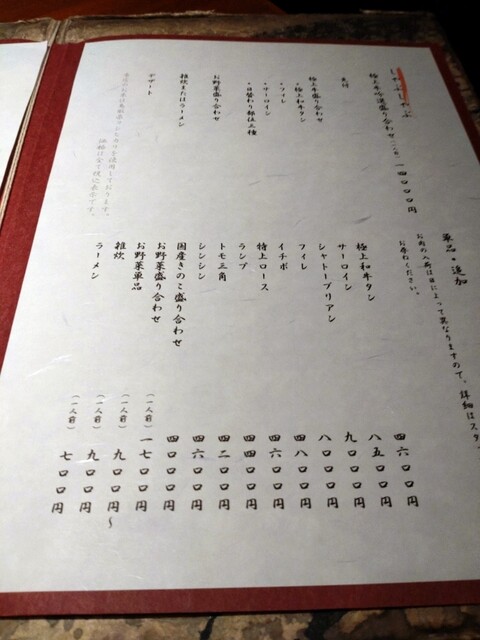 しゃぶしゃぶ
極上牛吟選盛り合わせ(一人前) 一四〇〇〇円
先付
極上牛盛り合わせ
・極上和牛タン
・フィレ
・サーロイン
・日替わり部位上種
お野菜盛り合わせ
雑炊またはラーメン
デザート
コシヒカリを使用しております。
価格は全て税込表示です。
単品・追加
お肉の入荷は日によって異なりますので、詳細はスタ
お尋ねください。
極上和牛タン 四六〇〇円
サーロイン 八五〇〇円
シャトーブリアン 九〇〇〇円
フィレ 八〇〇〇円
イチボ 四八〇〇円
特上ロース 四六〇〇円
ランプ 四四〇〇円
トモ三角 四二〇〇円
シンシン 四六〇〇円
国産きのこ盛り合わせ 四〇〇〇円
お野菜盛り合わせ (一人前) 一七〇〇円
お野菜単品 (一人前) 九〇〇円〜
雑炊 (一人前) 九〇〇円
ラーメン (一人前) 七〇〇円